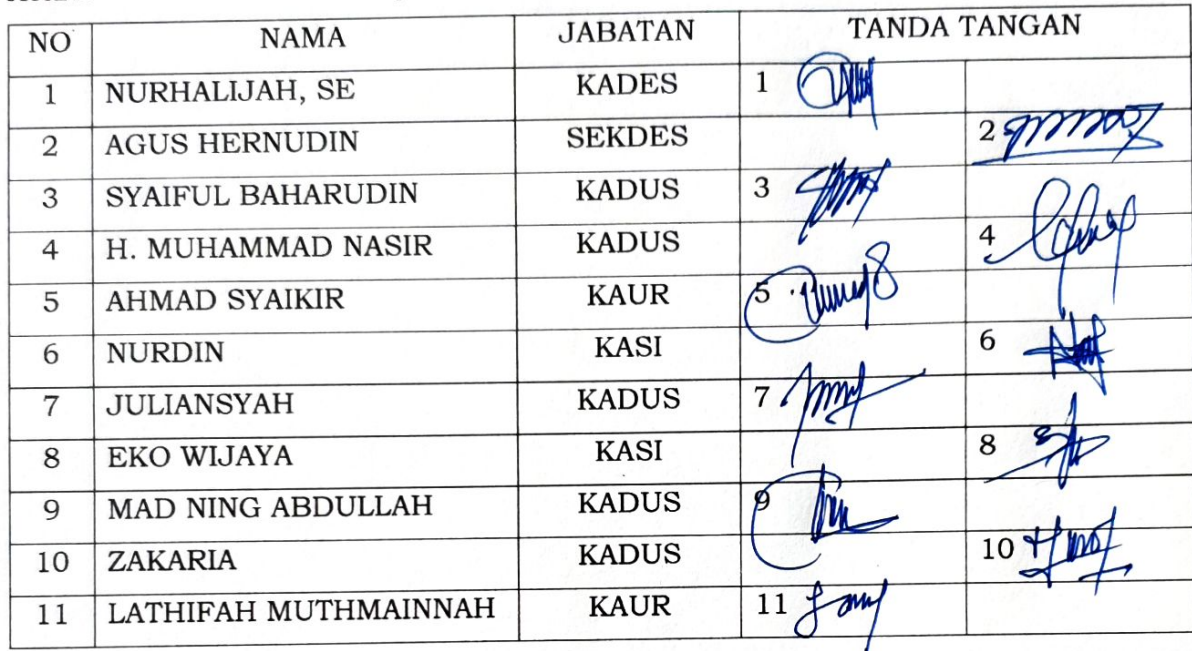 NO NAMA JABATAN TANDA TANGAN
1 NURHALIJAH, SE KADES 1
2 AGUS HERNUDIN SEKDES 2
3 SYAIFUL BAHARUDIN KADUS 3
4 H. MUHAMMAD NASIR KADUS 4
5 AHMAD SYAIKIR KAUR 5
6 NURDIN KASI 6
7 JULIANSYAH KADUS 7
8 EKO WIJAYA KASI 8
9 MAD NING ABDULLAH KADUS 9
10 ZAKARIA KADUS 10
11 LATHIFAH MUTHMAINNAH KAUR 11